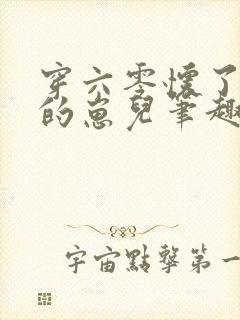 穿六零懷了
的崽兒筆趣
宇宙點擊第一